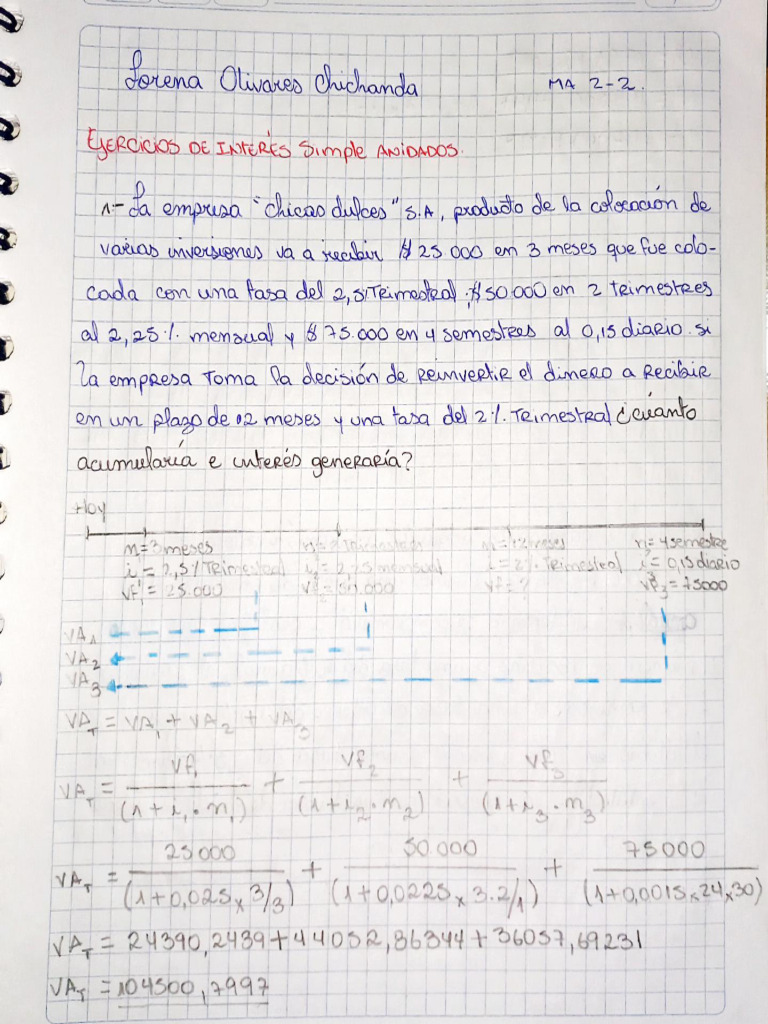 Lorena Olivares Chichanda MA 2-2.
EJERCICIOS DE INTERÉS Simple ANIDADOS.
1.- La empresa "chicas dulces" S.A, producto de la colocación de
varias inversiones va a recibir $ 25 000 en 3 meses que fue colo-
cada con una tasa del 2,5% Trimestral; $50.000 en 2 trimestres
al 2,25%. mensual y $ 75.000 en 4 semestres al 0,15 diario. si
la empresa toma la decisión de Reinvertir el dinero a Recibir
en un plazo de 12 meses y una tasa del 2%. Trimestral ¿cuánto
acumularía e interés generaría?
Hoy
n=3 meses n=2 Trimestres n=12 meses n=4 semestre
i¹= 2,5% Trimestral i²= 2,25 mensual i=2%. Trimestral i³= 0,15 diario
Vf₁ = 25.000 Vf₂ = 50.000 Vf= ? Vf₃ = 75000
VA₁
VA₂
VA₃
VA_T = VA₁ + VA₂ + VA₃
VA_T = Vf₁/(1+i₁·n₁) + Vf₂/(1+i₂·n₂) + Vf₃/(1+i₃·n₃)
VA_T = 25000/(1+0,025 x 3/3) + 50.000/(1+0,0225 x 3.2/1) + 75000/(1+0,0015 x 24 x 30)
VA_T = 24390,2439 + 44052,86344 + 36057,69231
VA_T = 104500,7997